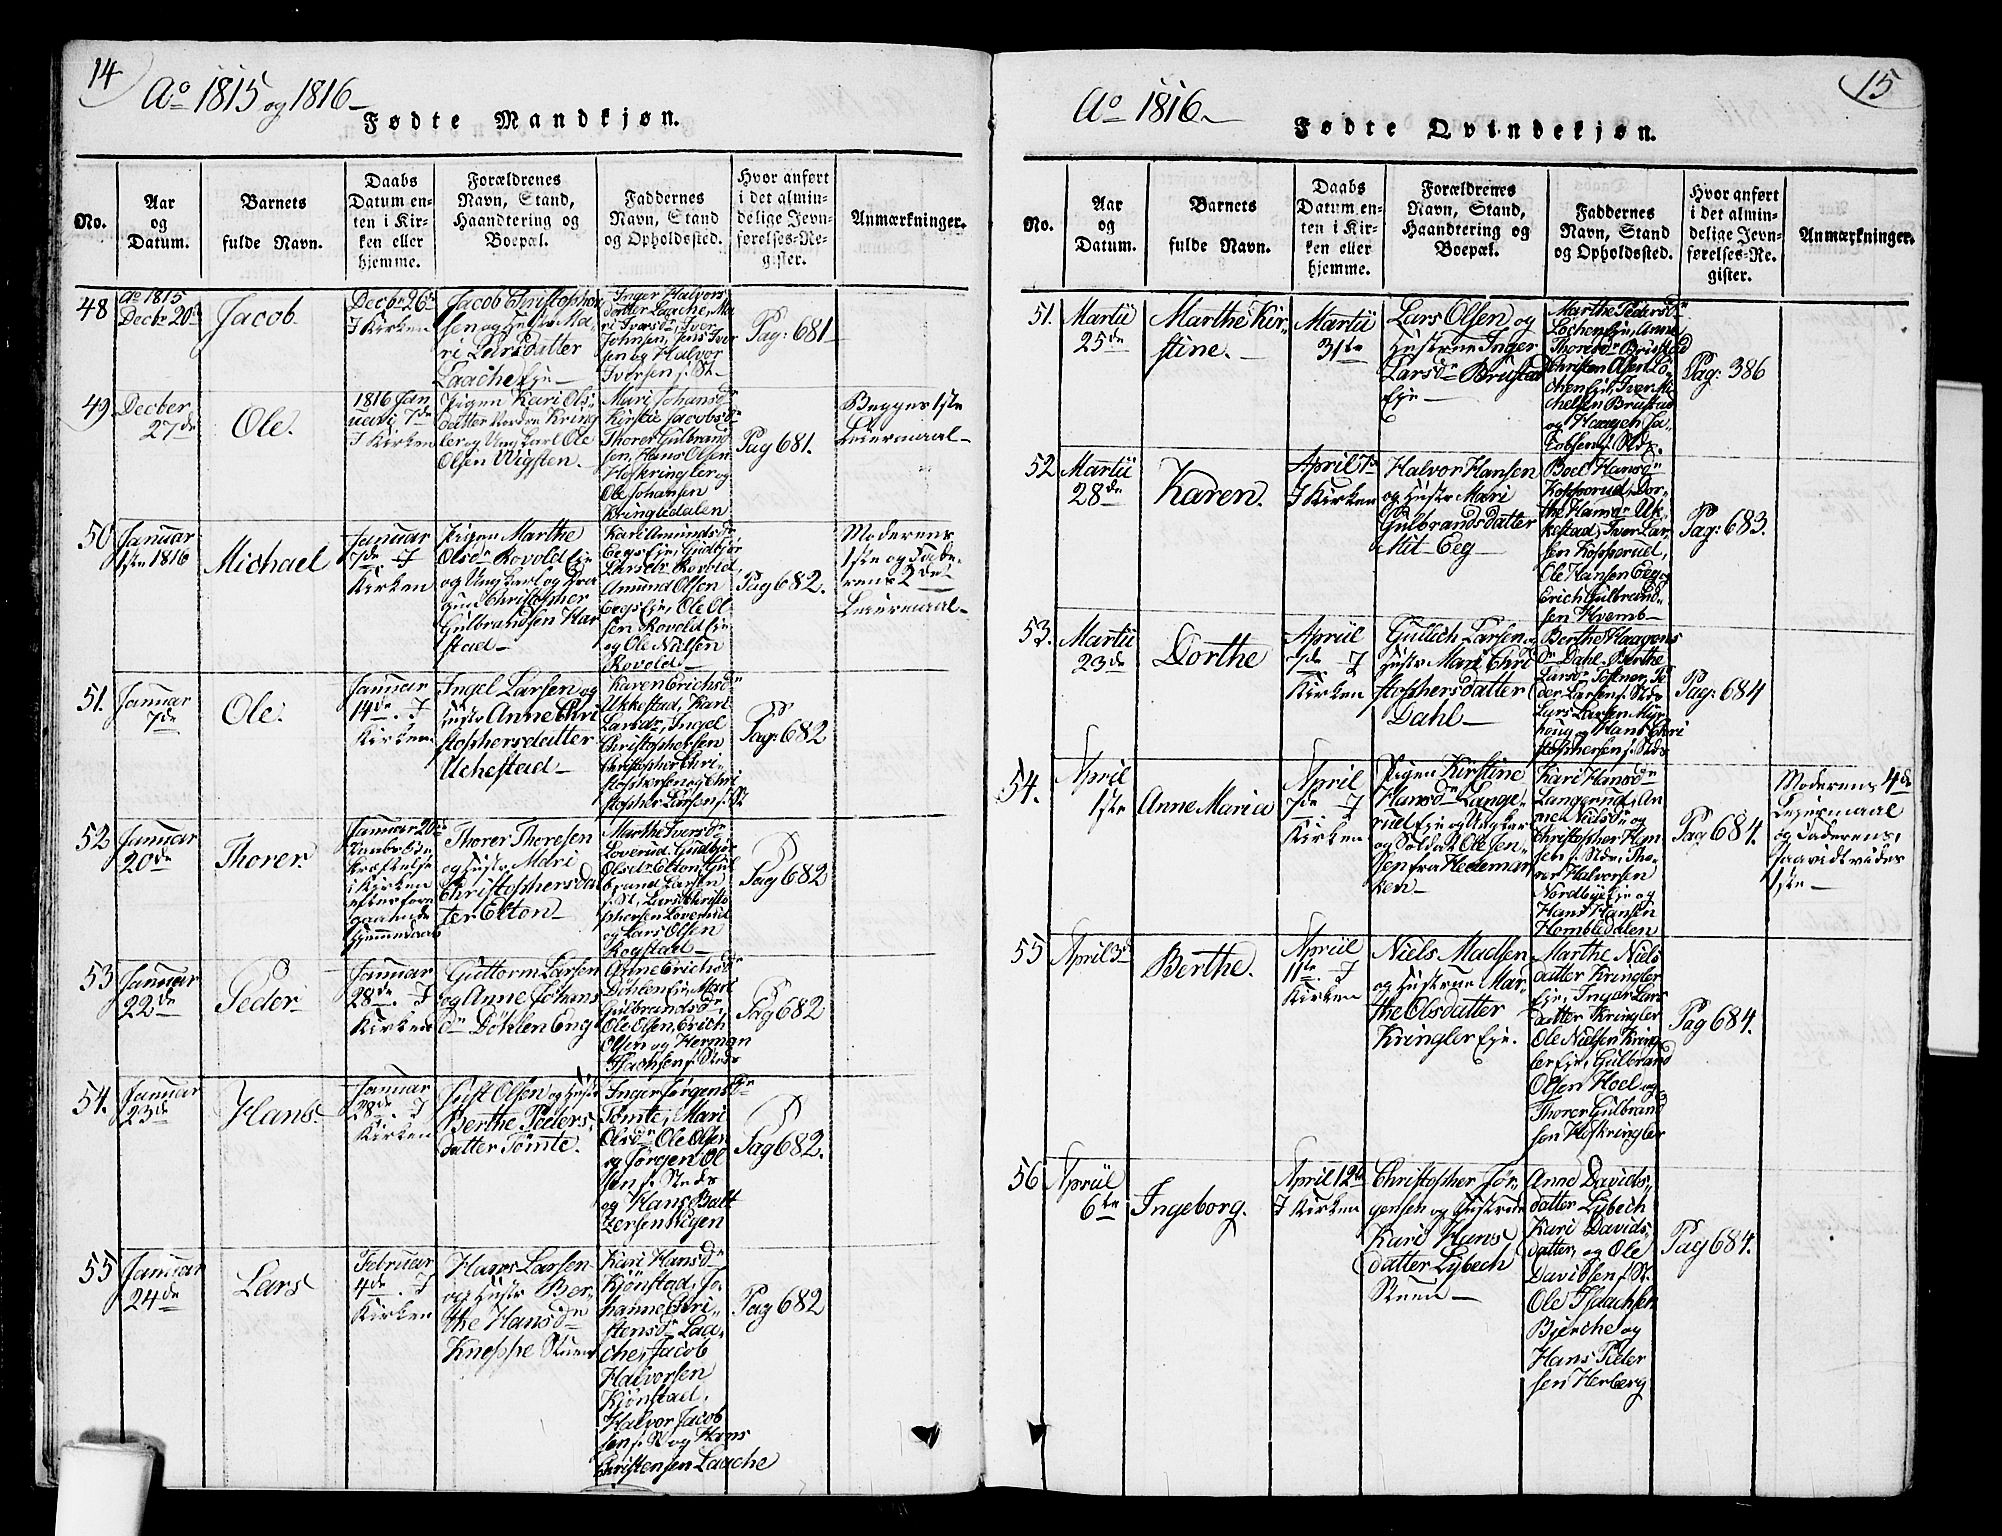 14
Ao 1815 og 1816
Fødte Mandkjøn.
No.
Aar
og
Datum.
Barnets
fulde Navn.
Daabs
Datum en-
ten i Kir-
ken eller
hjemme.
Forældrenes
Navn, Stand,
Haandtering og
Boepæl.
Faddernes
Navn, Stand
og Opholdssted.
Hvor anført
i det almin-
delige Jevn-
førelses-Re-
gister.
Anmærkninger.
48
Ao 1815
Decbr 20de
Jacob
Decbr 26de
I Kirken
Jacob Christopher
sen og Hustr Ma-
ri Larsdatter
Laache Eje
Inger Halvors
datter Laache, Ma-
ri Iversdr, Iver
Johnsen, Jens Iver
sen og Halvor
Iversen f. St.
Pag: 681
49
Decber
27de
Ole.
1816 Jan
uarj 7de
I Kirken
Pigen Kari Ols-
datter Nordre Kring
ler og Ung Karl Ole
Olsen Wigsten.
Mari Johansdr
Kirstie Jacobsdr
Thorer Gulbrand
sen, Hans Olsen
Hofkringler og
Ole Johansen
Kringledalen
Pag 681.
Begges 1ste
Leiermaal
50
Januar
1ste 1816
Michael
Januar
7de I
Kirken
Pigen Marthe
Olsdr Rovold Eje
og Ung Karl og Dra
gun Christopher
Gulbrandsen Har
stad
Kari Amundsdr
Eegs Eje, Gudbjør
Larsdr Rovold,
Amund Olsen
Eegs Eje, Ole Ol
sen Rovold Eje
og Ole Nielsen
Rovold
Pag 682.
Moderens
1ste og Fade-
rens 2det
Leiermaal
51.
Januar
7de
Ole.
Januar
14de. I
Kirken
Ingel Larsen og
Hustr Anne Chri
stophersdatter
Uchestad
Karen Erichsdr
Ukkestad, Kari
Larsdr, Ingel
Christophersen
Christopher Chri-
stophersen og Chri
stopher Larsen f. St
Pag: 682
52
Januar
20de
Thorer.
Januar 20de
i Kirken
efter fore
gaaende
Hjemmedaab
Thorer Thoresen
og Hustr Mari
Christophersdat
ter Elton
Marthe Iversdr
Loverud, Gudbjør
Olsdr Elton, Gul
brand Larsen
f. St, Lars Christo
phersen Loverud
og Lars Olsen
Rogstad
Pag 682
53
Januar
22de
Peder
Januar
28de. I
Kirken
Guttorm Larsen
og Anne Johans
dr Döhlen Eng
Anne Erichsdr
Döhlen Eje, Mari
Gulbrandsdr,
Ole Olsen, Erich
Olsen og Herman
Isachsen f. Steds
Pag 682
54.
Januar
23de
Hans.
Januar
28de. I
Kirken
Just Olsen og Hustr
Berthe Peders-
datter Tömte.
Inger Jörgensdr
Tömte, Mari
Olsdr Ole Olsen
og Jörgen Ol
sen f. Steds
og Hans Balt
zersen Hégen
Pag 682.
55
Januar
24de
Lars
Februar
4de. I
Kirken
Hans Larsen
og Hustr Ber-
the Hansdr
Kneppe Stuen
Kari Hansdr
Kjönstad, Jo-
hanne Chri-
stensdr Laa-
che, Jacob
Halvorsen
Kjönstad,
Halvor Jacob
sen f. St og Hans
Christensen Laache
Pag 682
15
Ao 1816
Fødte Qvindekjøn.
No.
Aar
og
Datum.
Barnets
fulde Navn.
Daabs
Datum, en-
ten i Kir-
ken eller
hjemme.
Forældrenes
Navn, Stand,
Haandtering og
Boepæl.
Faddernes
Navn, Stand
og Opholdssted.
Hvor anført
i det almin-
delige Jevn-
førelses-Re-
gister.
Anmærkninger.
51.
Martii
25de
Marthe Kir-
stine.
Martii
31te
Lars Olsen og
Hustrue Inger
Larsdr Brustad
Eje
Marthe Pedersdr
Lochen Eje, Anne
Thoresdr Brustad
Christen Olsen Lo-
chen Eje, Iver Mi
chelsen Brustad
og Haagen Ja-
cobsen f. Sted.
Pag: 386
52
Martii
28de
Karen.
April 7de
I Kirken
Halvor Hansen
og Hustr Mari
Gulbrandsdatter
Mit-Eeg
Boel Hansdr
Kopperud, Dor-
the Hansdr Uk-
kestad, Iver Lar-
sen Kopperud,
Ole Hansen Eeg og
Erich Gulbrand-
sen Hvemb
Pag: 683.
53.
Martii
23de
Dorthe
April
7de I
Kirken
Gullich Larsen og
Hustr Mari Chri
stophersdatter
Dahl
Berthe Haagens
dr Dahl, Berthe
Larsdr Tofsner, Pe-
der Larsen f. Sted
Lars Larsen Myr-
houg og Hans Chri
stophersen f. Sted
Pag: 684
54.
April
1ste
Anne Maria
April
7de I
Kirken
Pigen Kirstine
Hansdr Lange-
rud Eje og Ungkarl
og Soldat Ole Jen-
sen fra Hedemar
ken
Kari Hansdr
Langerud, An-
ne Nielsdr og
Christopher Han
sen f. Stds, Tho-
rer Halvorsen
Nordbye Eje og
Hans Hansen
Hembledalen
Pag 684.
Moderens 4de
Leiermaal
og Faderens,
saavidt vides
1ste
55
April 3de
Berthe.
April
11te I
Kirken
Niels Madsen
og Hustrue Mar-
the Olsdatter
Kringler Eje.
Marthe Niels
datter Kringler
Eje, Inger Lars
datter Kringler
Ole Nielsen Kring
ler Eje, Gulbrand
Olsen Hoel og
Thorer Gulbrand
sen Hofkringler
Pag 684.
56
April
6te
Ingeborg.
April 12te
I Kirken
Christopher Jör-
gensen og Hustrue
Kari Hans
datter Lybech
Stuen
Anne Davids-
datter Lybech
Kari Davids-
datter, og Ole
Davidsen f. St.
Ole Isachsen
Bjerche og
Hans Peder
sen Herberg
Pag 684.